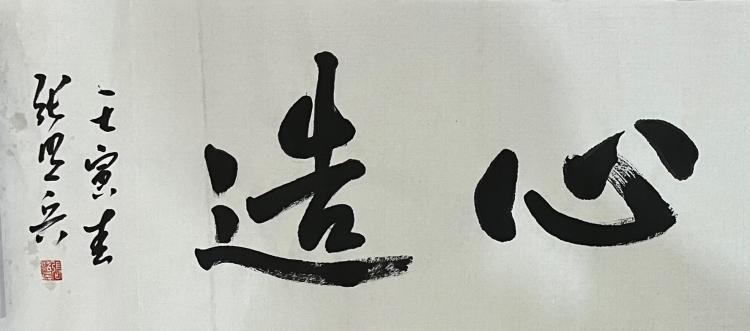 心造
壬寅春
張思兵